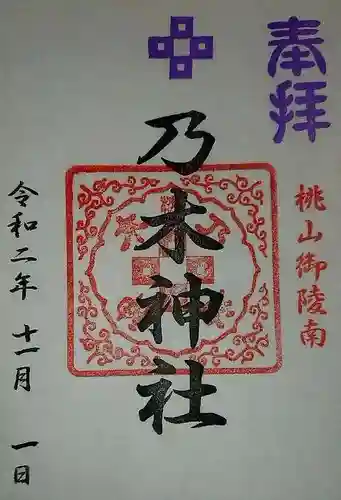 奉拝
桃山御陵南
乃木神社
令和二年十一月一日